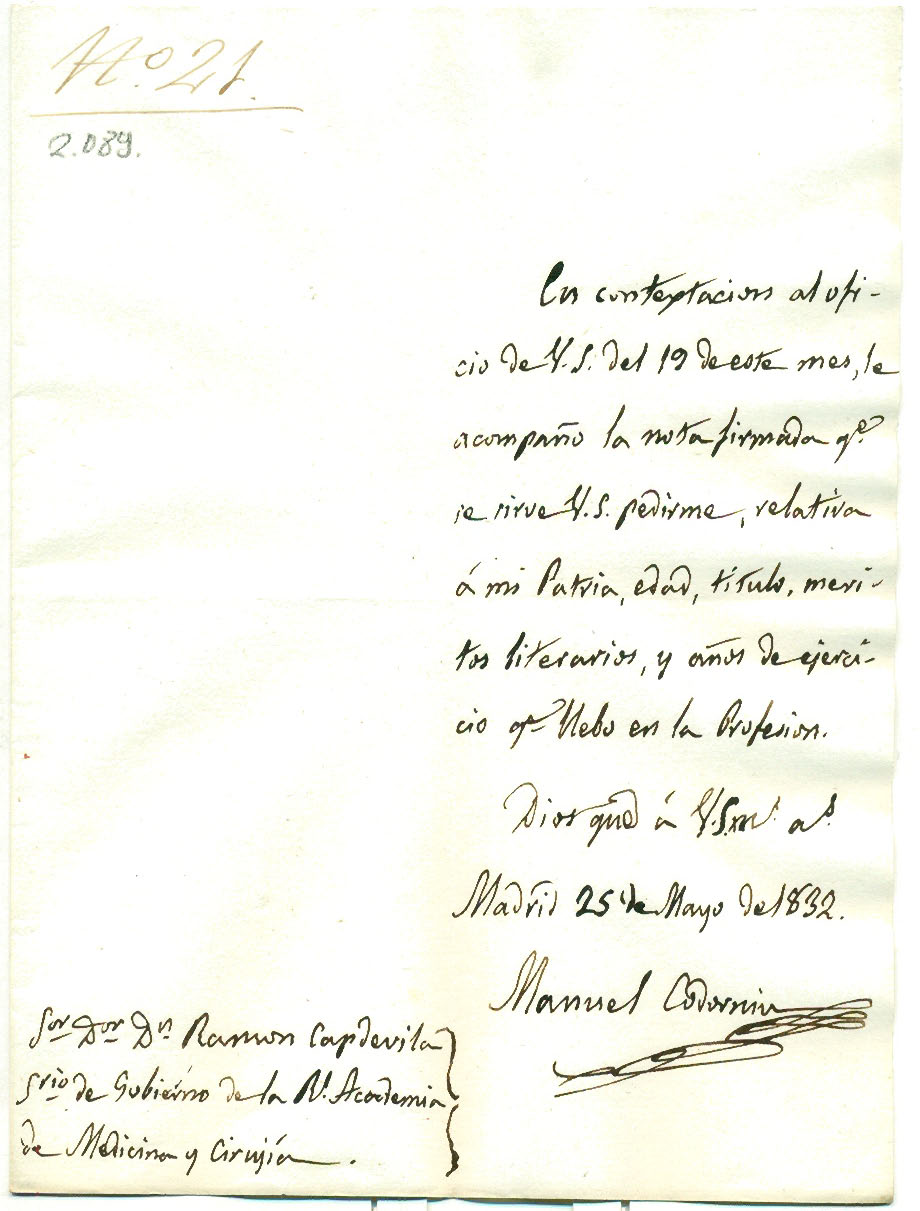 Nº. 21.
2.089.
En contextacion al ofi-
cio de V.S. del 19 de este mes, le
acompaño la nota firmada qe.
se sirve V.S. pedirme, relativa
á mi Patria, edad, título, meri-
tos literarios, y años de ejerci-
cio qe. llebo en la Profesion.
Dios gue á V.S. ms. as.
Madrid 25 de Mayo de 1832.
Manuel Codorniu
Sor. Dor. Dn. Ramon Capdevila
Srio. de Gobierno de la Rl. Academia
de Medicina y Cirujía.